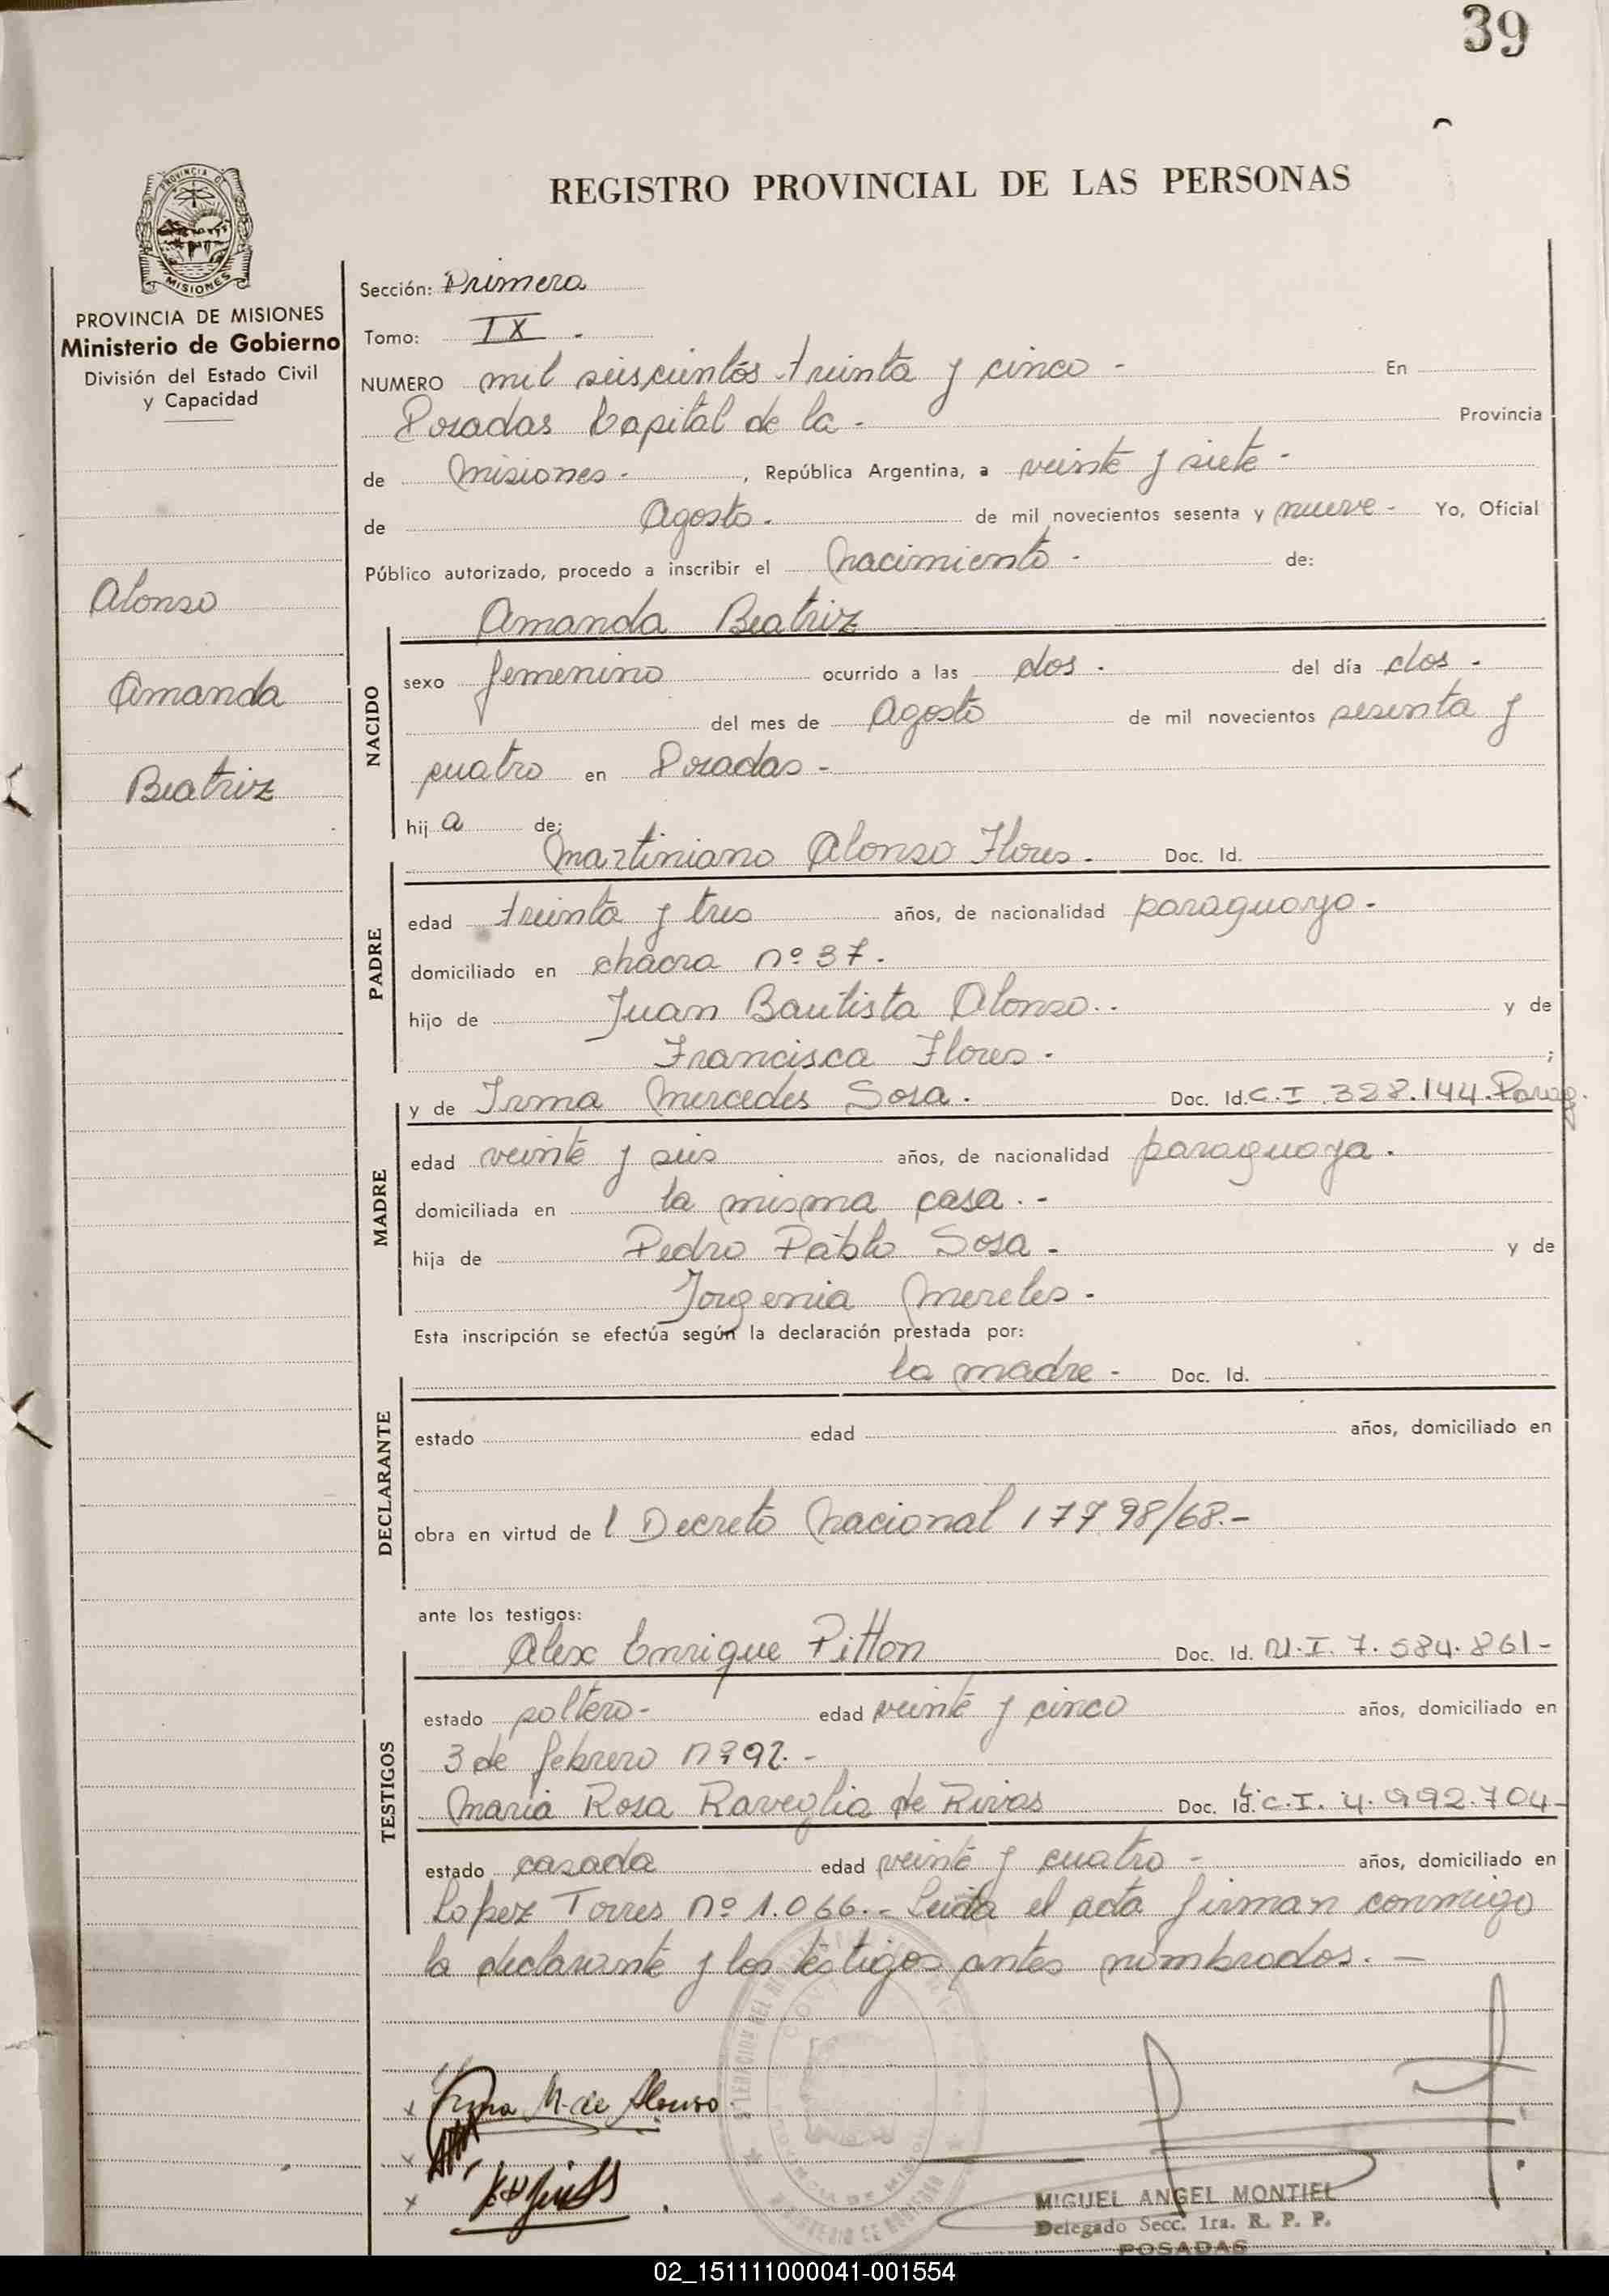 39
REGISTRO PROVINCIAL DE LAS PERSONAS
PROVINCIA DE
MISIONES
PROVINCIA DE MISIONES
Ministerio de Gobierno
División del Estado Civil
y Capacidad
Alonso
Amanda
Beatriz
Sección: Primera
Tomo: IX -
NUMERO mil seiscientos treinta y cinco - En
Posadas Capital de la - Provincia
de Misiones - , República Argentina, a veinte y siete -
de Agosto - de mil novecientos sesenta y nueve - Yo, Oficial
Público autorizado, procedo a inscribir el Nacimiento - de:
Amanda Beatriz
NACIDO
sexo femenino ocurrido a las dos - del día dos -
del mes de Agosto de mil novecientos sesenta y
cuatro en Posadas -
hij a de:
Martiniano Alonso Flores - Doc. Id.
PADRE
edad treinta y tres años, de nacionalidad paraguayo -
domiciliado en chacra nº 37.
hijo de Juan Bautista Alonso - y de
Francisca Flores - ;
y de Irma Mercedes Sosa - Doc. Id. C.I. 328.144. Parag.
MADRE
edad veinte y seis años, de nacionalidad paraguaya -
domiciliada en la misma casa. -
hija de Pedro Pablo Sosa - y de
Jorgenia Mereles -
Esta inscripción se efectúa según la declaración prestada por:
la madre - Doc. Id.
DECLARANTE
estado edad años, domiciliado en
obra en virtud de l Decreto Nacional 17798/68.-
ante los testigos:
Alex Enrique Pitton Doc. Id. M.I. 7.584.861-
TESTIGOS
estado soltero - edad veinte y cinco años, domiciliado en
3 de febrero nº 92. -
Maria Rosa Raveglia de Rivas Doc. Id. C.I. 4.992.704-
estado casada edad veinte y cuatro - años, domiciliado en
Lopez Torres nº 1.066.- Leida el acta firman conmigo
la declarante y los testigos antes nombrados. -
x Irma M. de Alonso
x
x
MIGUEL ANGEL MONTIEL
Delegado Secc. 1ra. R. P. P.
POSADAS
02_151111000041-001554